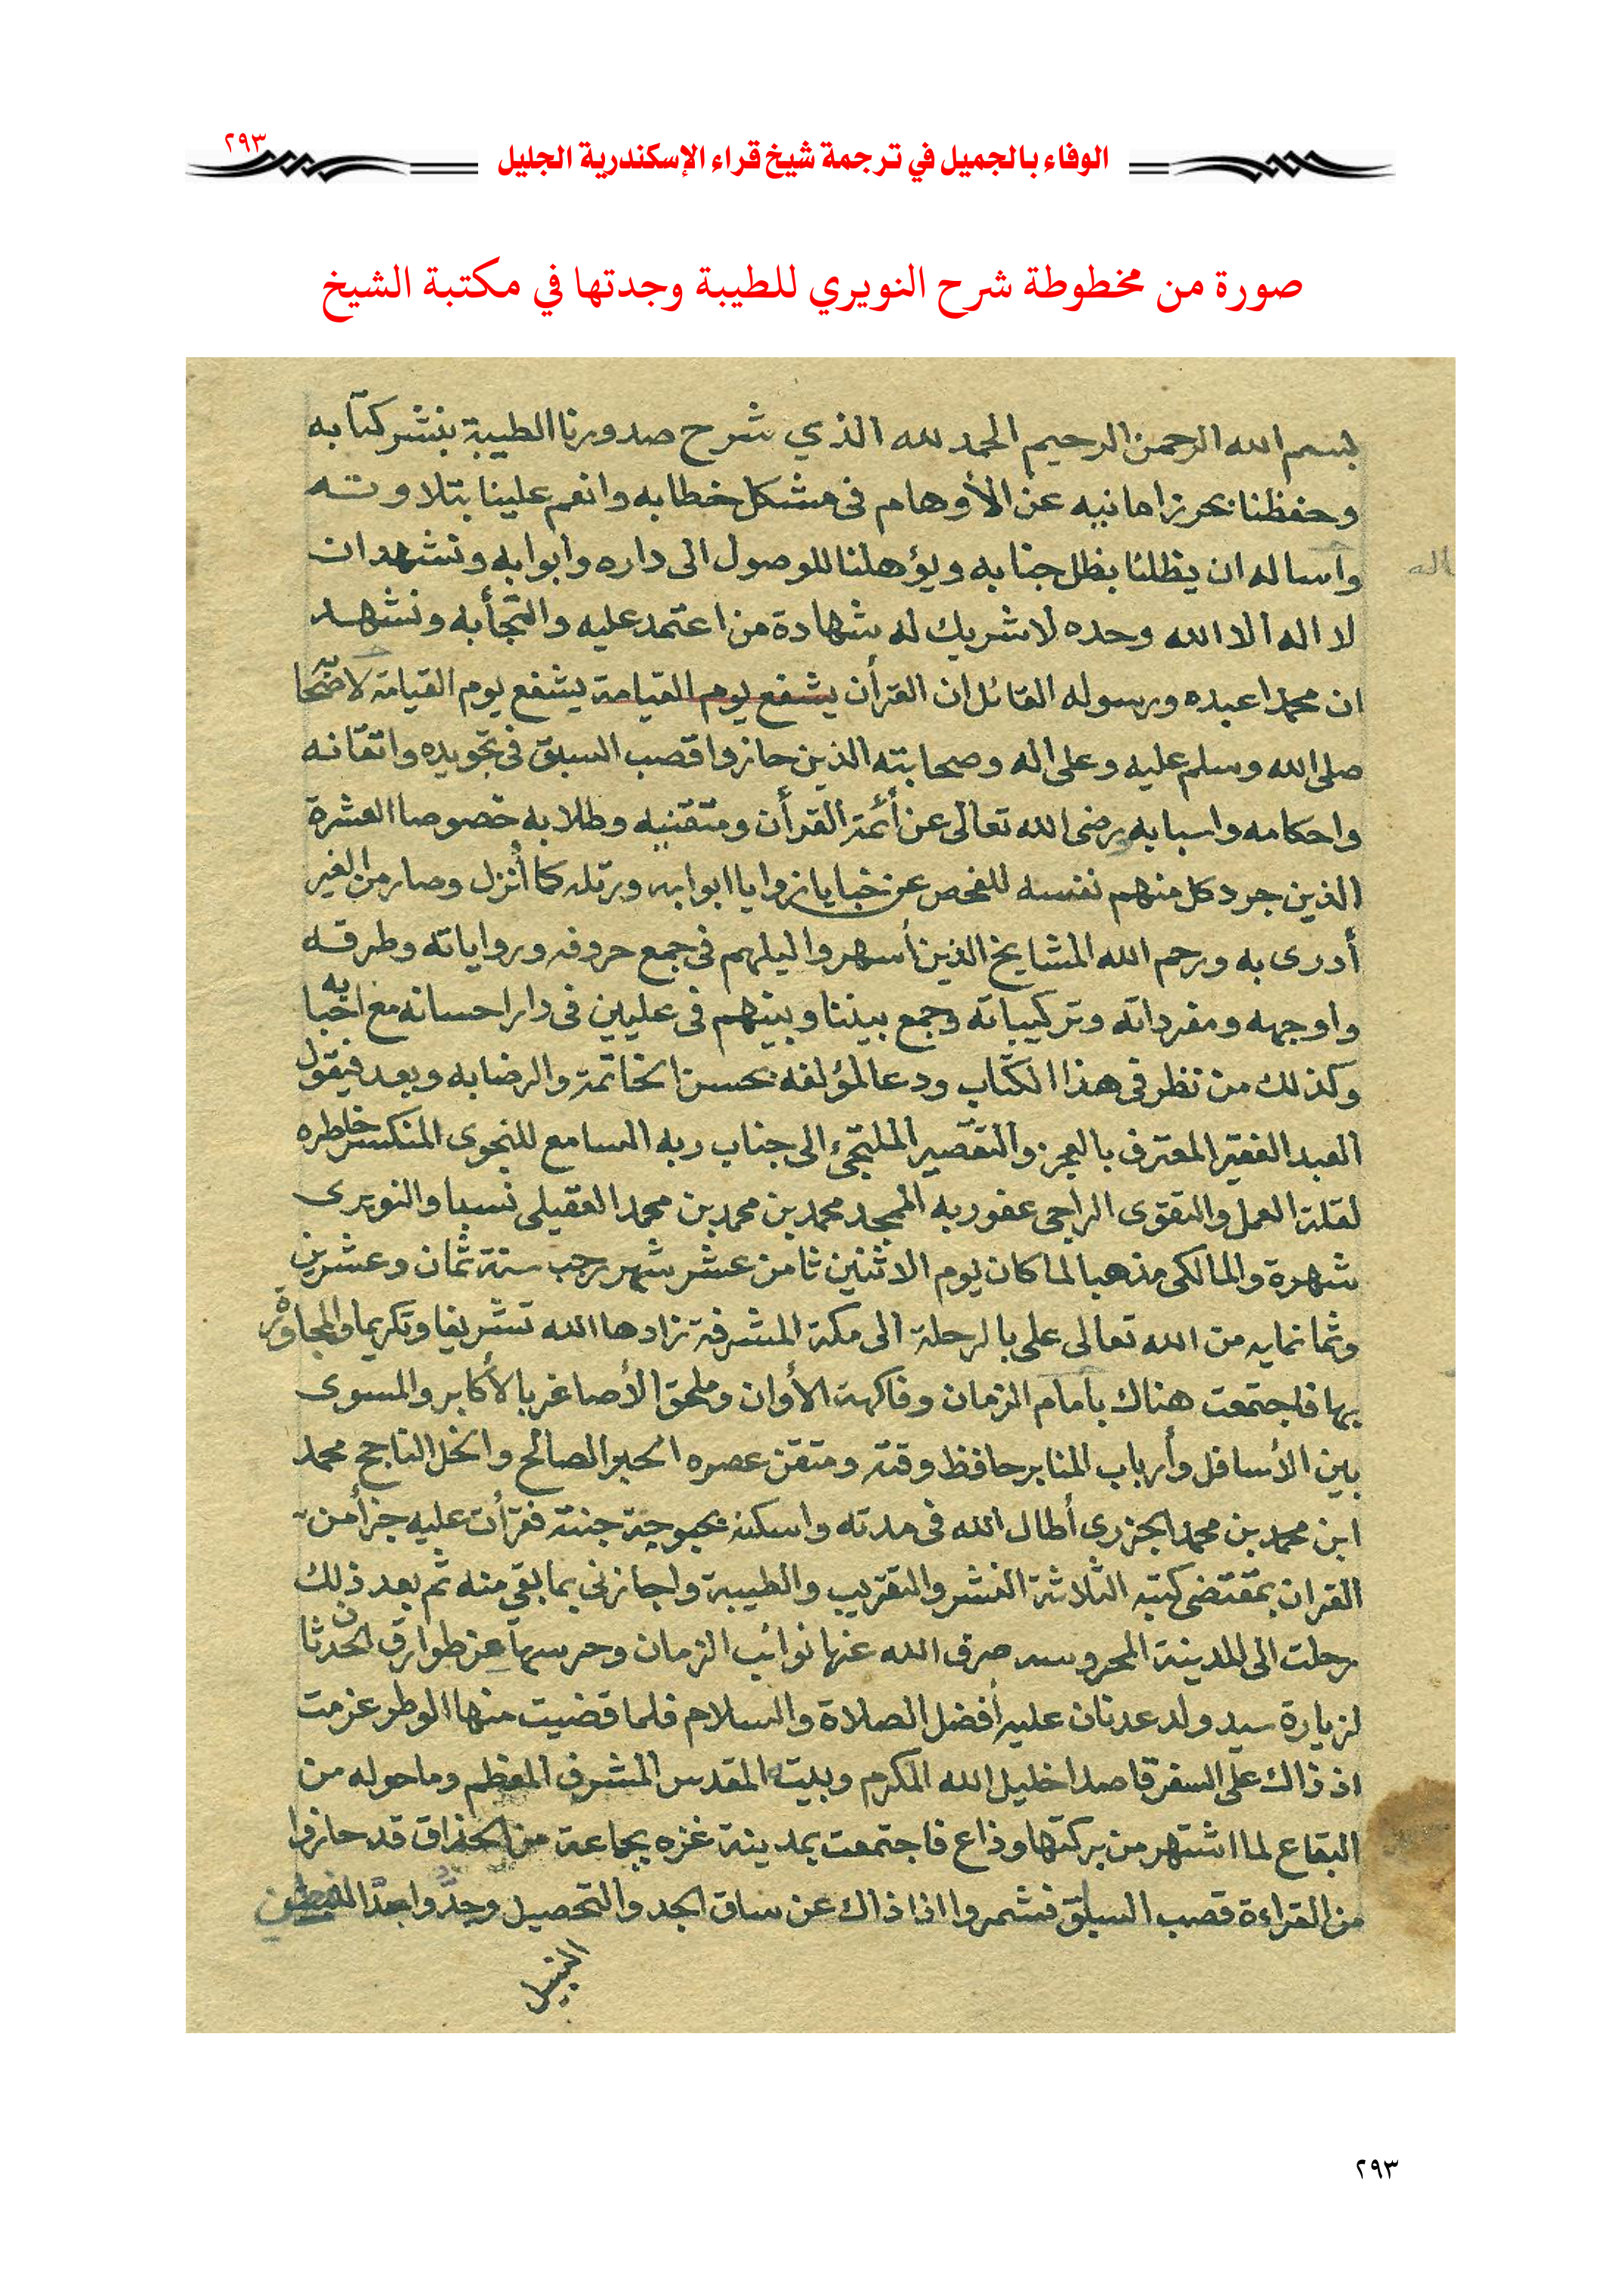 ٢٩٣
الوفاء بالجميل في ترجمة شيخ قراء الإسكندرية الجليل
صورة من مخطوطة شرح النويري للطيبة وجدتها في مكتبة الشيخ
بسم الله الرحمن الرحيم الحمد لله الذي شرح صدورنا الطيبة بنشر كتابه
وحفظنا بحرز امانيه عن الأوهام فى مشكل خطابه وانعم علينا بتلاوته
واساله ان يظلنا بظل جنابه ويؤهلنا للوصول الى داره وابوابه ونشهد ان
لا اله الا الله وحده لا شريك له شهادة من اعتمد عليه والتجأ به ونشهد
ان محمدا عبده ورسوله القائل ان القرأن يشفع يوم القيامة يشفع يوم القيامة لاصحابه
صلى الله وسلم عليه وعلى اله وصحابته الذين حازوا قصب السبق فى تجويده واتقانه
واحكامه واسبابه رضى الله تعالى عن أئمة القرأن ومتقنيه وطلابه خصوصا العشرة
الذين جرد كل منهم نفسه للفحص عن خبايا زوايا ابوابه ورتله كما أنزل وصار من الغير
أدرى به ورحم الله المشايخ الذين أسهروا ليلهم فى جمع حروفه ورواياته وطرقه
واوجهه ومفرداته وتركيباته وجمع بيننا وبينهم فى عليين فى دار احسانه مع احبابه
وكذلك من نظر فى هذا الكتاب ودعا لمؤلفه بحسن الخاتمة والرضا به وبعد فيقول
العبد الفقير المعترف بالعجز والتقصير الملتجئ الى جناب ربه السامع للنجوى المنكسر خاطره
لقلة العمل والتقوى الراجى عفو ربه الممجد محمد بن محمد بن محمد العقيلى نسبا والنويرى
شهرة والمالكى مذهبا لما كان يوم الاثنين ثامن عشر شهر رجب سنة ثمان وعشرين
وثمانمايه من الله تعالى على بالرحلة الى مكة المشرفة زادها الله تشريفا وتكريما والمجاورة
بها فاجتمعت هناك بامام الزمان وفاكهة الأوان وملحق الأصاغر بالأكابر والمسوى
بين الأسافل وأرباب المنابر حافظ وقته ومتقن عصره الحبر الصالح والخل الناجح محمد
ابن محمد بن محمد الجزرى أطال الله فى مدته واسكنه بحبوحة جنته فقرأت عليه جزأ من
القران بمقتضى كتبه الثلاثة النشر والتقريب والطيبة واجازنى بما بقى منه ثم بعد ذلك
رحلت الى المدينة المحروسه صرف الله عنها نوائب الزمان وحرسها عن طوارق الحدثان
لزيارة سيد ولد عدنان عليه أفضل الصلاة والسلام فلما قضيت منها الوطر عزمت
اذ ذاك على السفر قاصدا خليل الله المكرم وبيته المقدس المشرف المعظم وما حوله من
البقاع لما اشتهر من بركتها وذاع فاجتمعت بمدينة غزه بجماعة من الحذاق قد حازوا
من القراءة قصب السباق فشمروا اذا ذاك عن ساق الجد والتحصيل وجدوا
٢٩٣